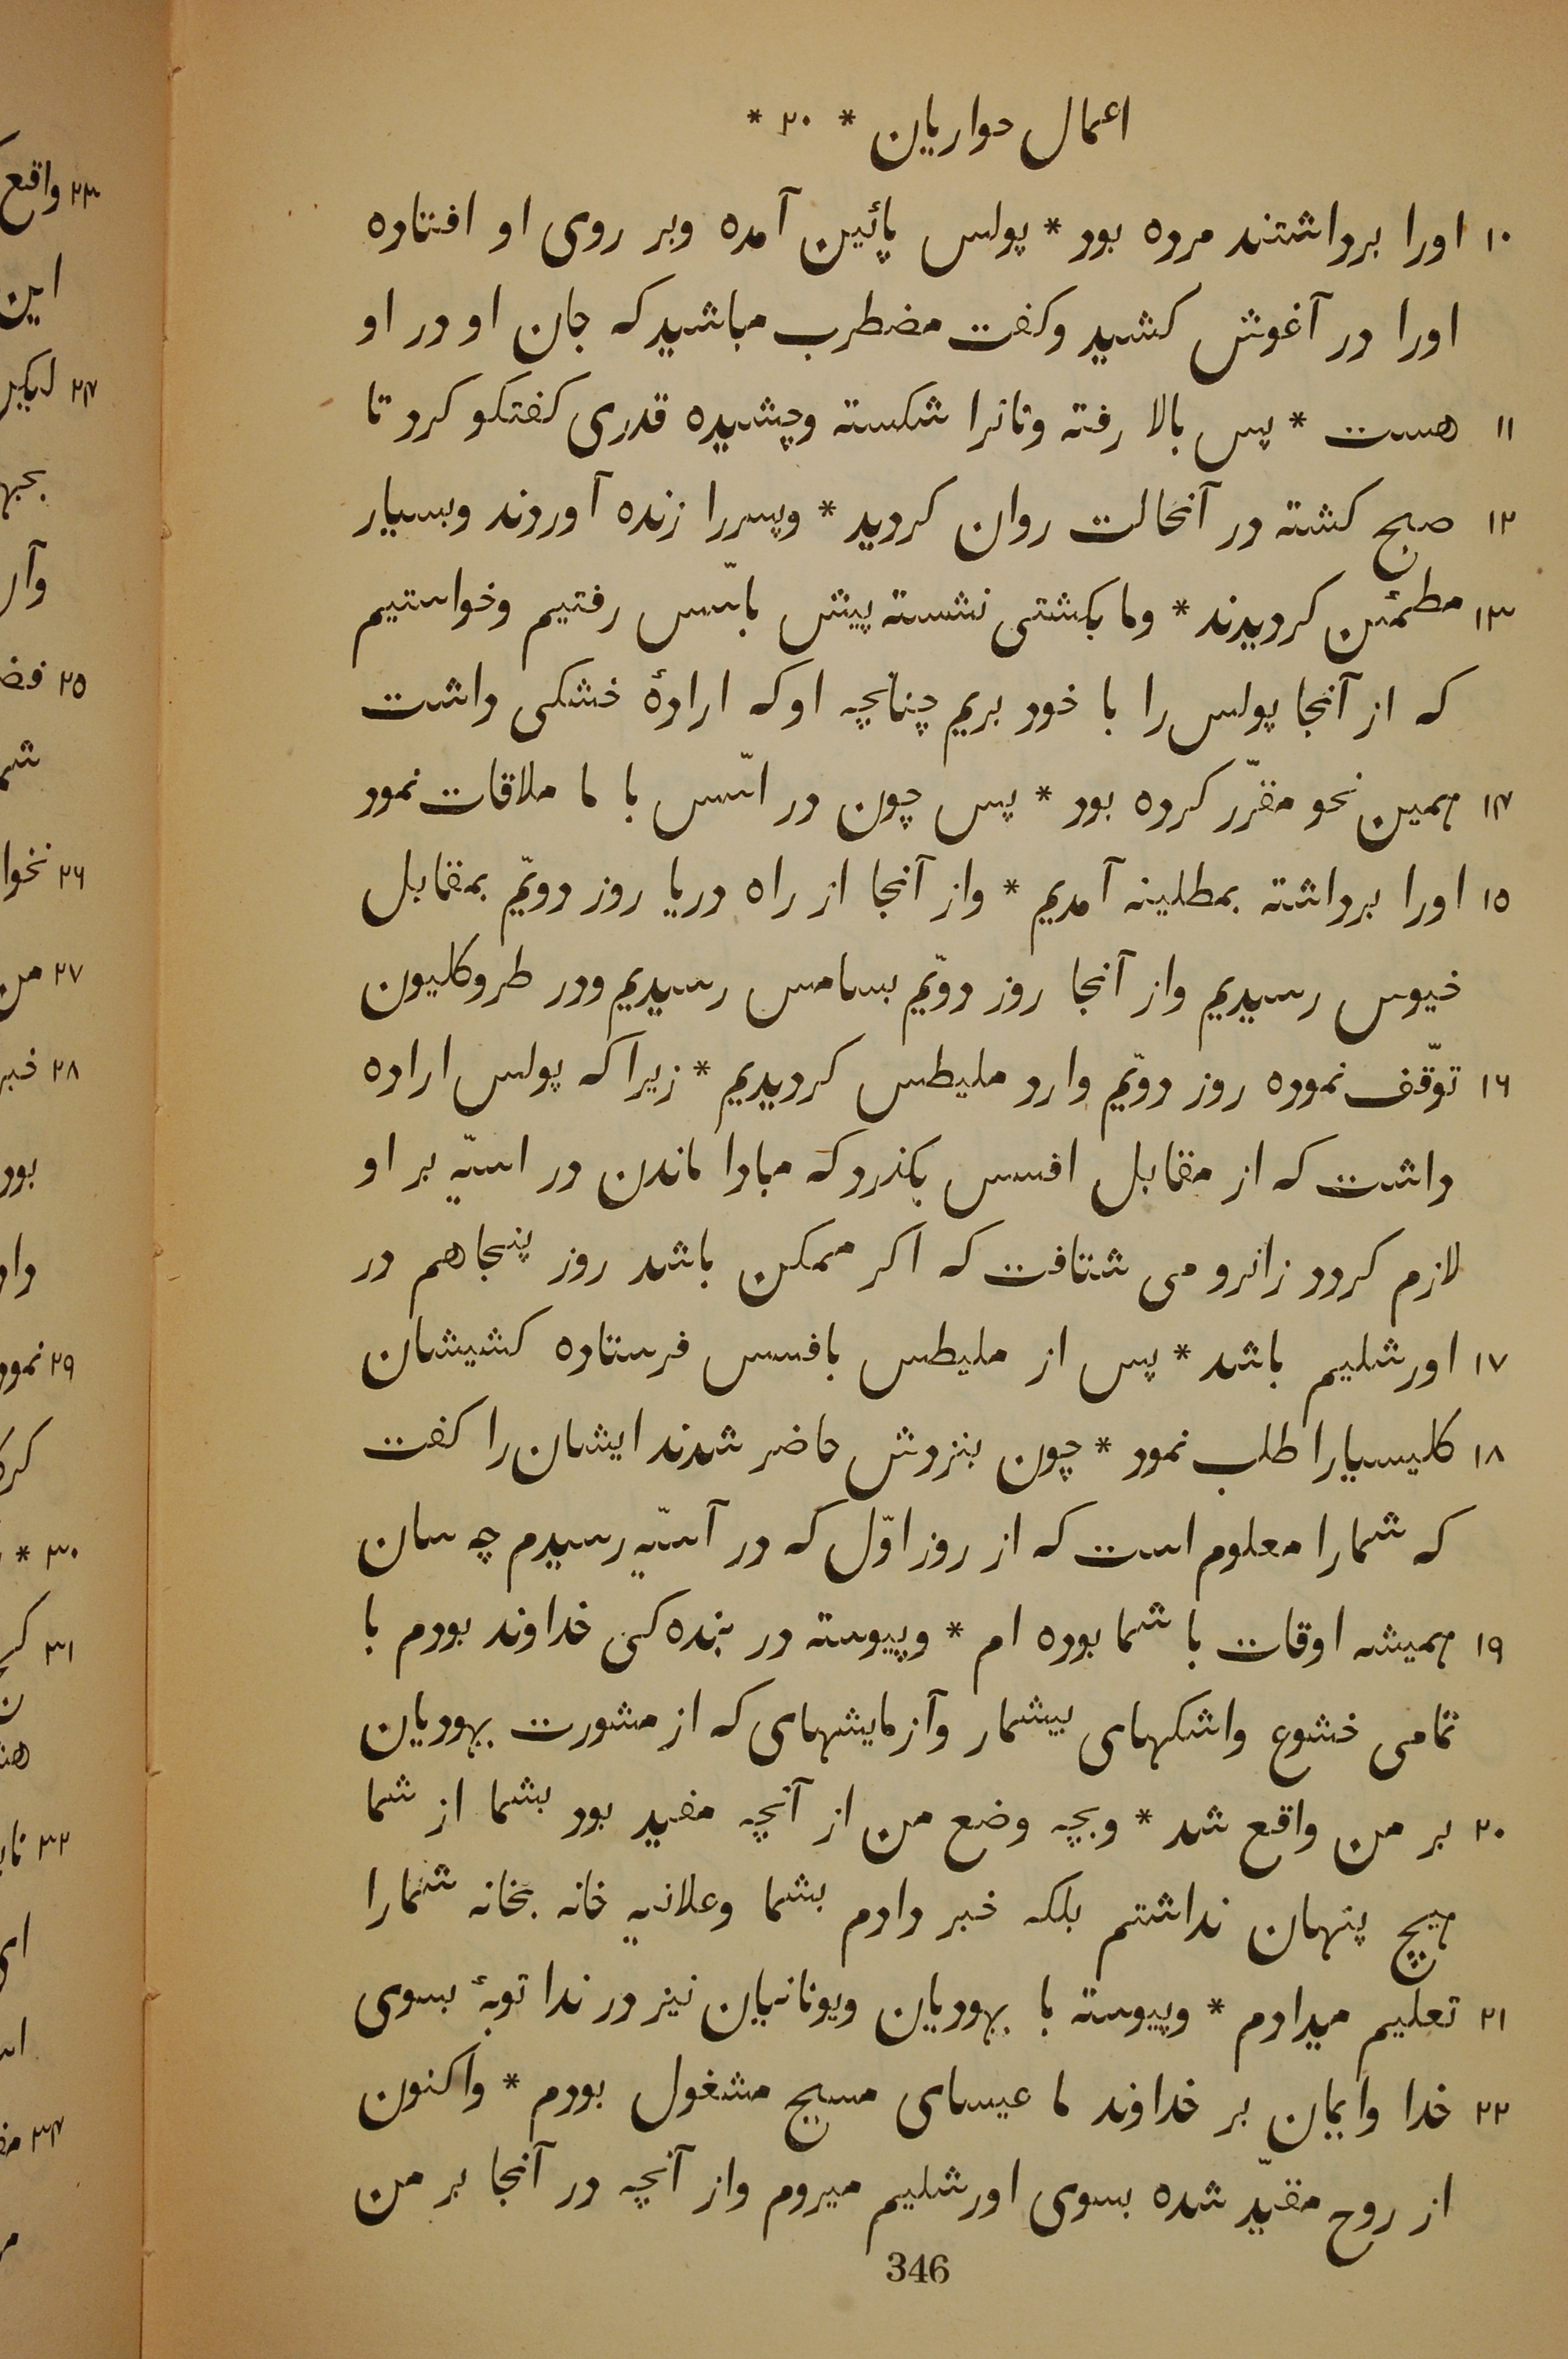 اعمال حواریان * ۲۰ *
۱۰ اورا برداشتند مرده بود * پولس پائین آمده وبر روی او افتاده
اورا در آغوش کشید وکفت مضطرب مباشید که جان او در او
۱۱ هست * پس بالا رفته ونانرا شکسته وچشیده قدری کفتکو کرد تا
۱۲ صبح کشته در آنحالت روان کردید * وپسررا زنده آوردند وبسیار
۱۳ مطمئن کردیدند * وما بکشتی نشسته پیش باسّس رفتیم وخواستیم
که از آنجا پولس را با خود بریم چنانچه او که ارادهٔ خشکی داشت
۱۴ همین نحو مقرّر کرده بود * پس چون در اسّس با ما ملاقات نمود
۱۵ اورا برداشته بمطلینه آمدیم * واز آنجا از راه دریا روز دویّم بمقابل
خیوس رسیدیم واز آنجا روز دویّم بسامس رسیدیم ودر طروکلیون
۱۶ توقّف نموده روز دویّم وارد ملیطس کردیدیم * زیرا که پولس اراده
داشت که از مقابل افسس بکذرد که مبادا ماندن در اسیّه بر او
لازم کردد زانرو می شتافت که اکر ممکن باشد روز پنجاهم در
۱۷ اورشلیم باشد * پس از ملیطس بافسس فرستاده کشیشان
۱۸ کلیسیارا طلب نمود * چون بنزدش حاضر شدند ایشان را کفت
که شمارا معلوم است که از روز اوّل که در آسیّه رسیدم چه سان
۱۹ همیشه اوقات با شما بوده ام * وپیوسته در بنده کی خداوند بودم با
تمامی خشوع واشکهای بیشمار وآزمایشهای که از مشورت یهودیان
۲۰ بر من واقع شد * وبچه وضع من از آنچه مفید بود بشما از شما
هیچ پنهان نداشتم بلکه خبر دادم بشما وعلانیه خانه بخانه شمارا
۲۱ تعلیم میدادم * وپیوسته با یهودیان ویونانیان نیز در ندا توبهٔ بسوی
۲۲ خدا وایمان بر خداوند ما عیسای مسیح مشغول بودم * واکنون
از روح مقیّد شده بسوی اورشلیم میروم واز آنچه در آنجا بر من
346
۲۳ واقع
این
۲۴ لیکن
۲۵
۲۶
۲۷ من
۲۸ خبر
بود
۲۹ نمود
۳۰ *
۳۱
۳۲
۳۴